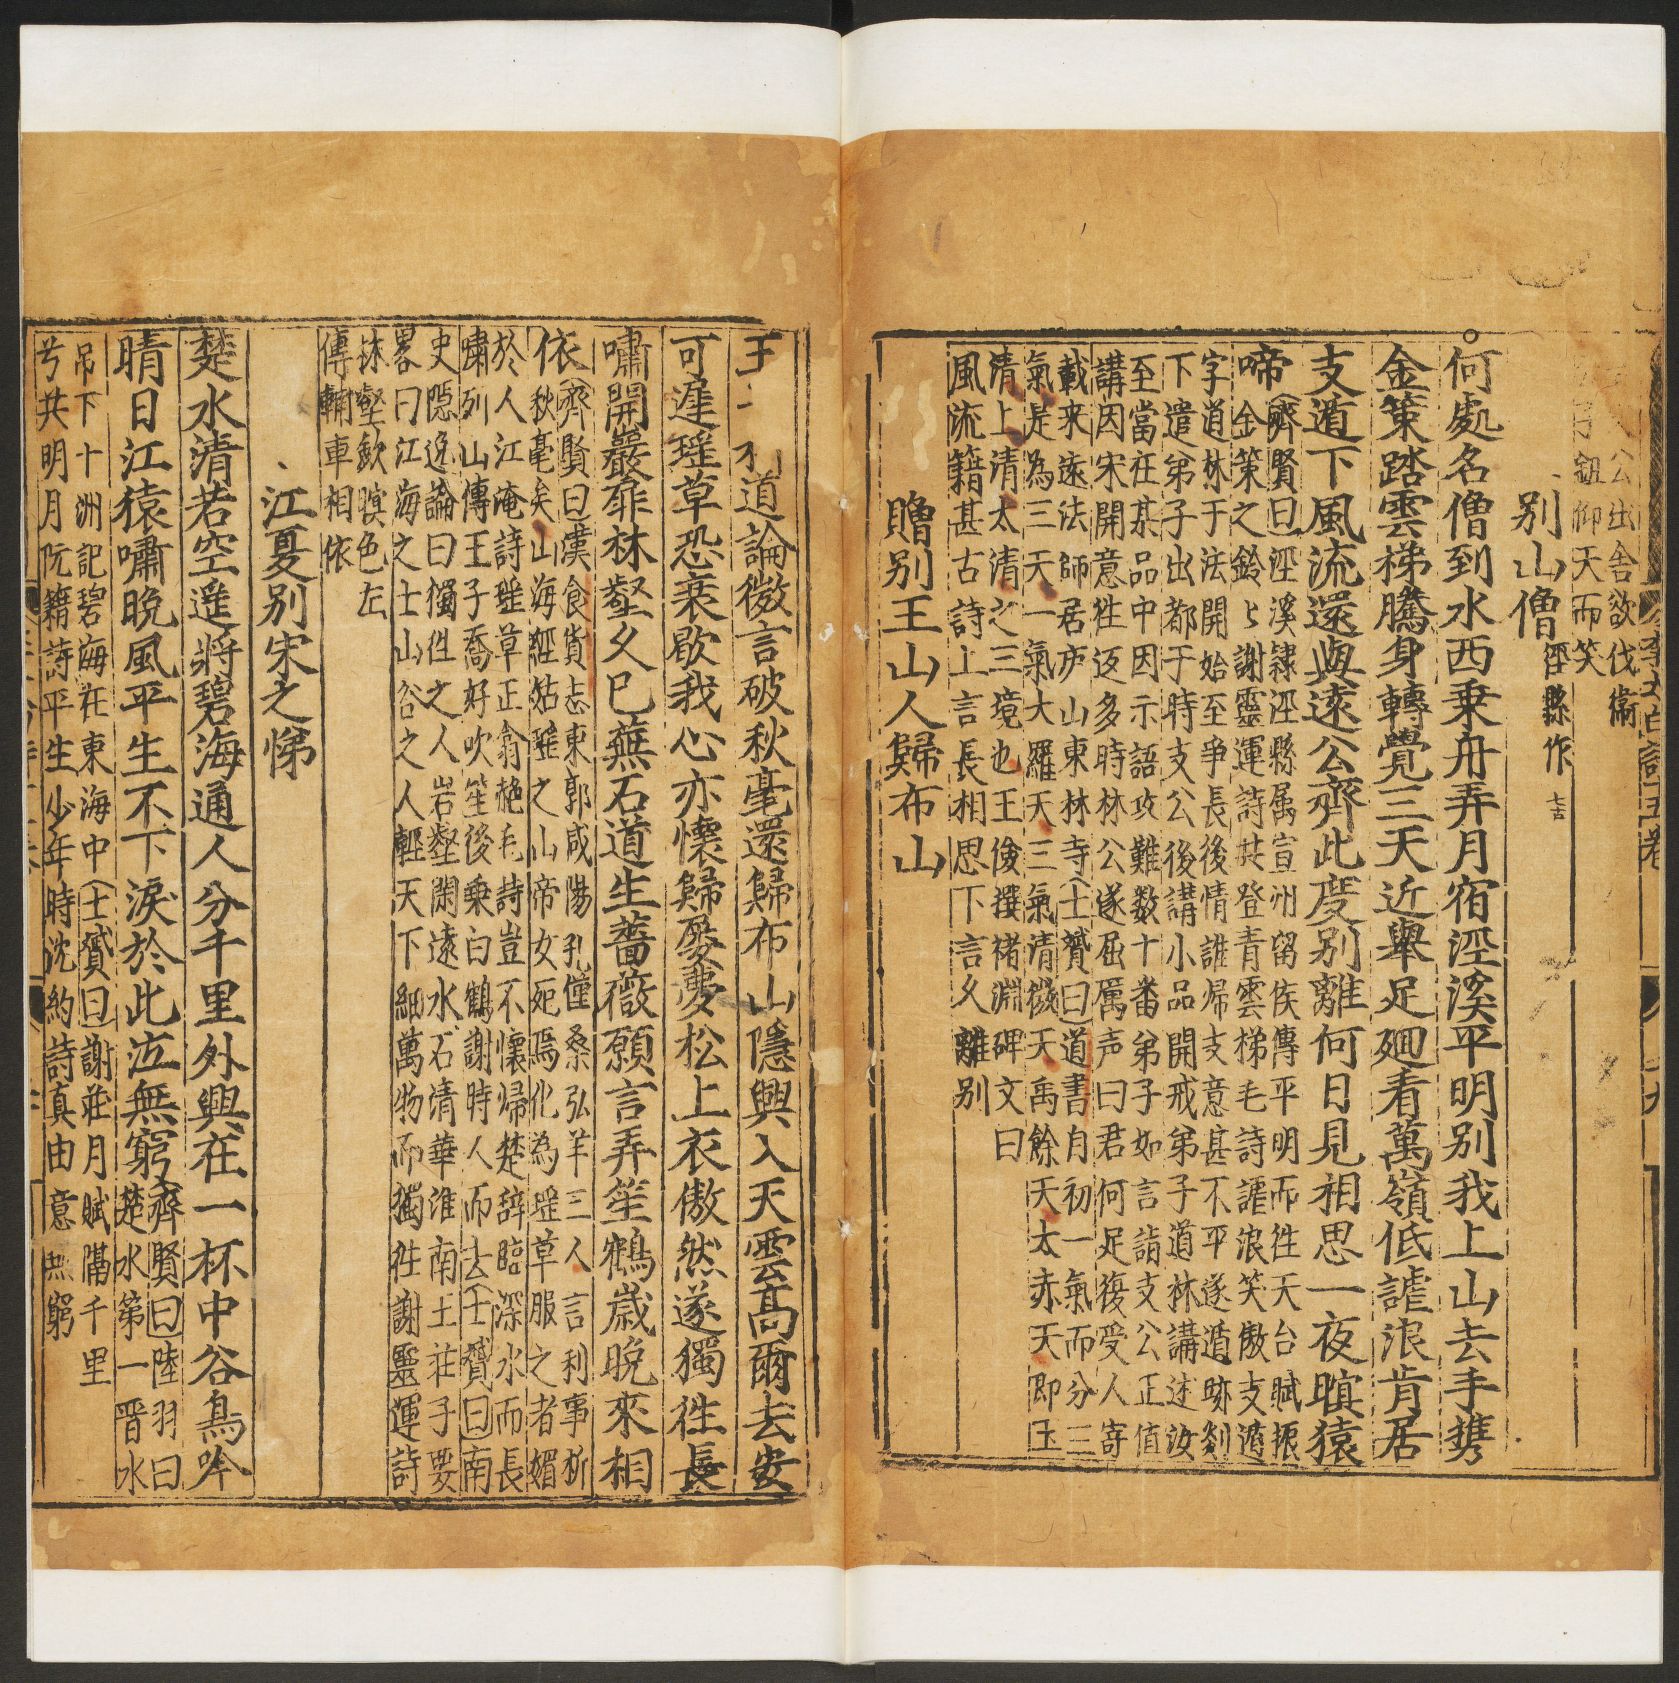 公出舍欲伐衛
仰天而笑
別山僧 涇縣作
何處名僧到水西乗舟弄月宿涇溪平明別我上山去手携
金策踏雲梯騰身轉覺三天近舉足廻看萬嶺低謔浪肯居
支遁下風流還與遠公齊此度別離何日見相思一夜暝猿
啼
齊賢曰涇溪隷涇縣属宣州留侯傳平明而徃天台賦振
金策之鈴〻謝靈運詩共登青雲梯毛詩謔浪笑傲支遁
字道林于法開始至爭長後情誰歸支意甚不平遂遁跡剡
下遣弟子出都于時支公後講小品開戒弟子道林講述汝
至當在某品中因示語攻難数十畨弟子如言詣支公正值
講因宋開意徃返多時林公遂屈厲声曰君何足復受人寄
載来遠法師居庐山東林寺士贇曰道書自初一氣而分三
氣是為三天一氣大羅天三氣清微天禹餘天太赤天即玉
清上清太清之三境也王儉撰褚淵碑文曰
風流籍甚古詩上言長相思下言久離別
贈別王山人歸布山
王 道論微言破秋毫還歸布山隱興入天雲髙爾去安
可遲瑶草恐衰歇我心亦懷歸屡夢松上衣傲然遂獨徃長
嘯開巖扉林壑久已蕪石道生薔薇願言弄笙鶴歲晚來相
依
齊賢曰漢食貨志東郭咸陽孔僅桑弘羊三人言利事析
秋毫矣山海經姑瑶之山帝女死焉化為瑶草服之者媚
於人江淹詩瑶草正翕赩毛詩豈不懷歸楚辞臨深水而長
嘯列山傳王子喬好吹笙後乗白鶴謝時人而去士贇曰南
史隠逸論曰獨徃之人岩壑閑遠水石清華淮南王莊子要
畧曰江海之士山谷之人輕天下細萬物而獨徃謝靈運詩
林壑歛暝色左
傳輔車相依
江夏別宋之悌
楚水清若空遥將碧海通人分千里外興在一杯中谷鳥吟
晴日江猿嘯晚風平生不下淚於此泣無窮
齊賢曰陸羽曰
楚水第一晋水
吊下十洲記碧海在東海中士贇曰謝莊月賦隔千里
兮共明月阮籍詩平生少年時沈約詩真由意無窮